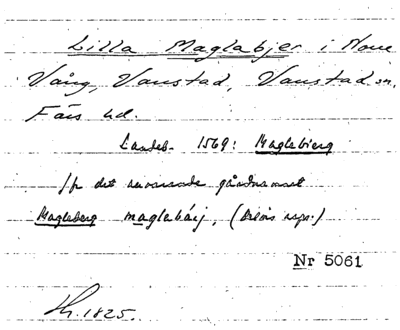 Lilla Maglabjer i Norre
Vång, Vanstad, Vanstad sn,
Färs hd.
Landeb. 1569: Maglebierg
Jfr det nuvarande gårdnamnet
Magleberg maglabärj, (Billes uppt.)
Nr 5061
Th. 1825.